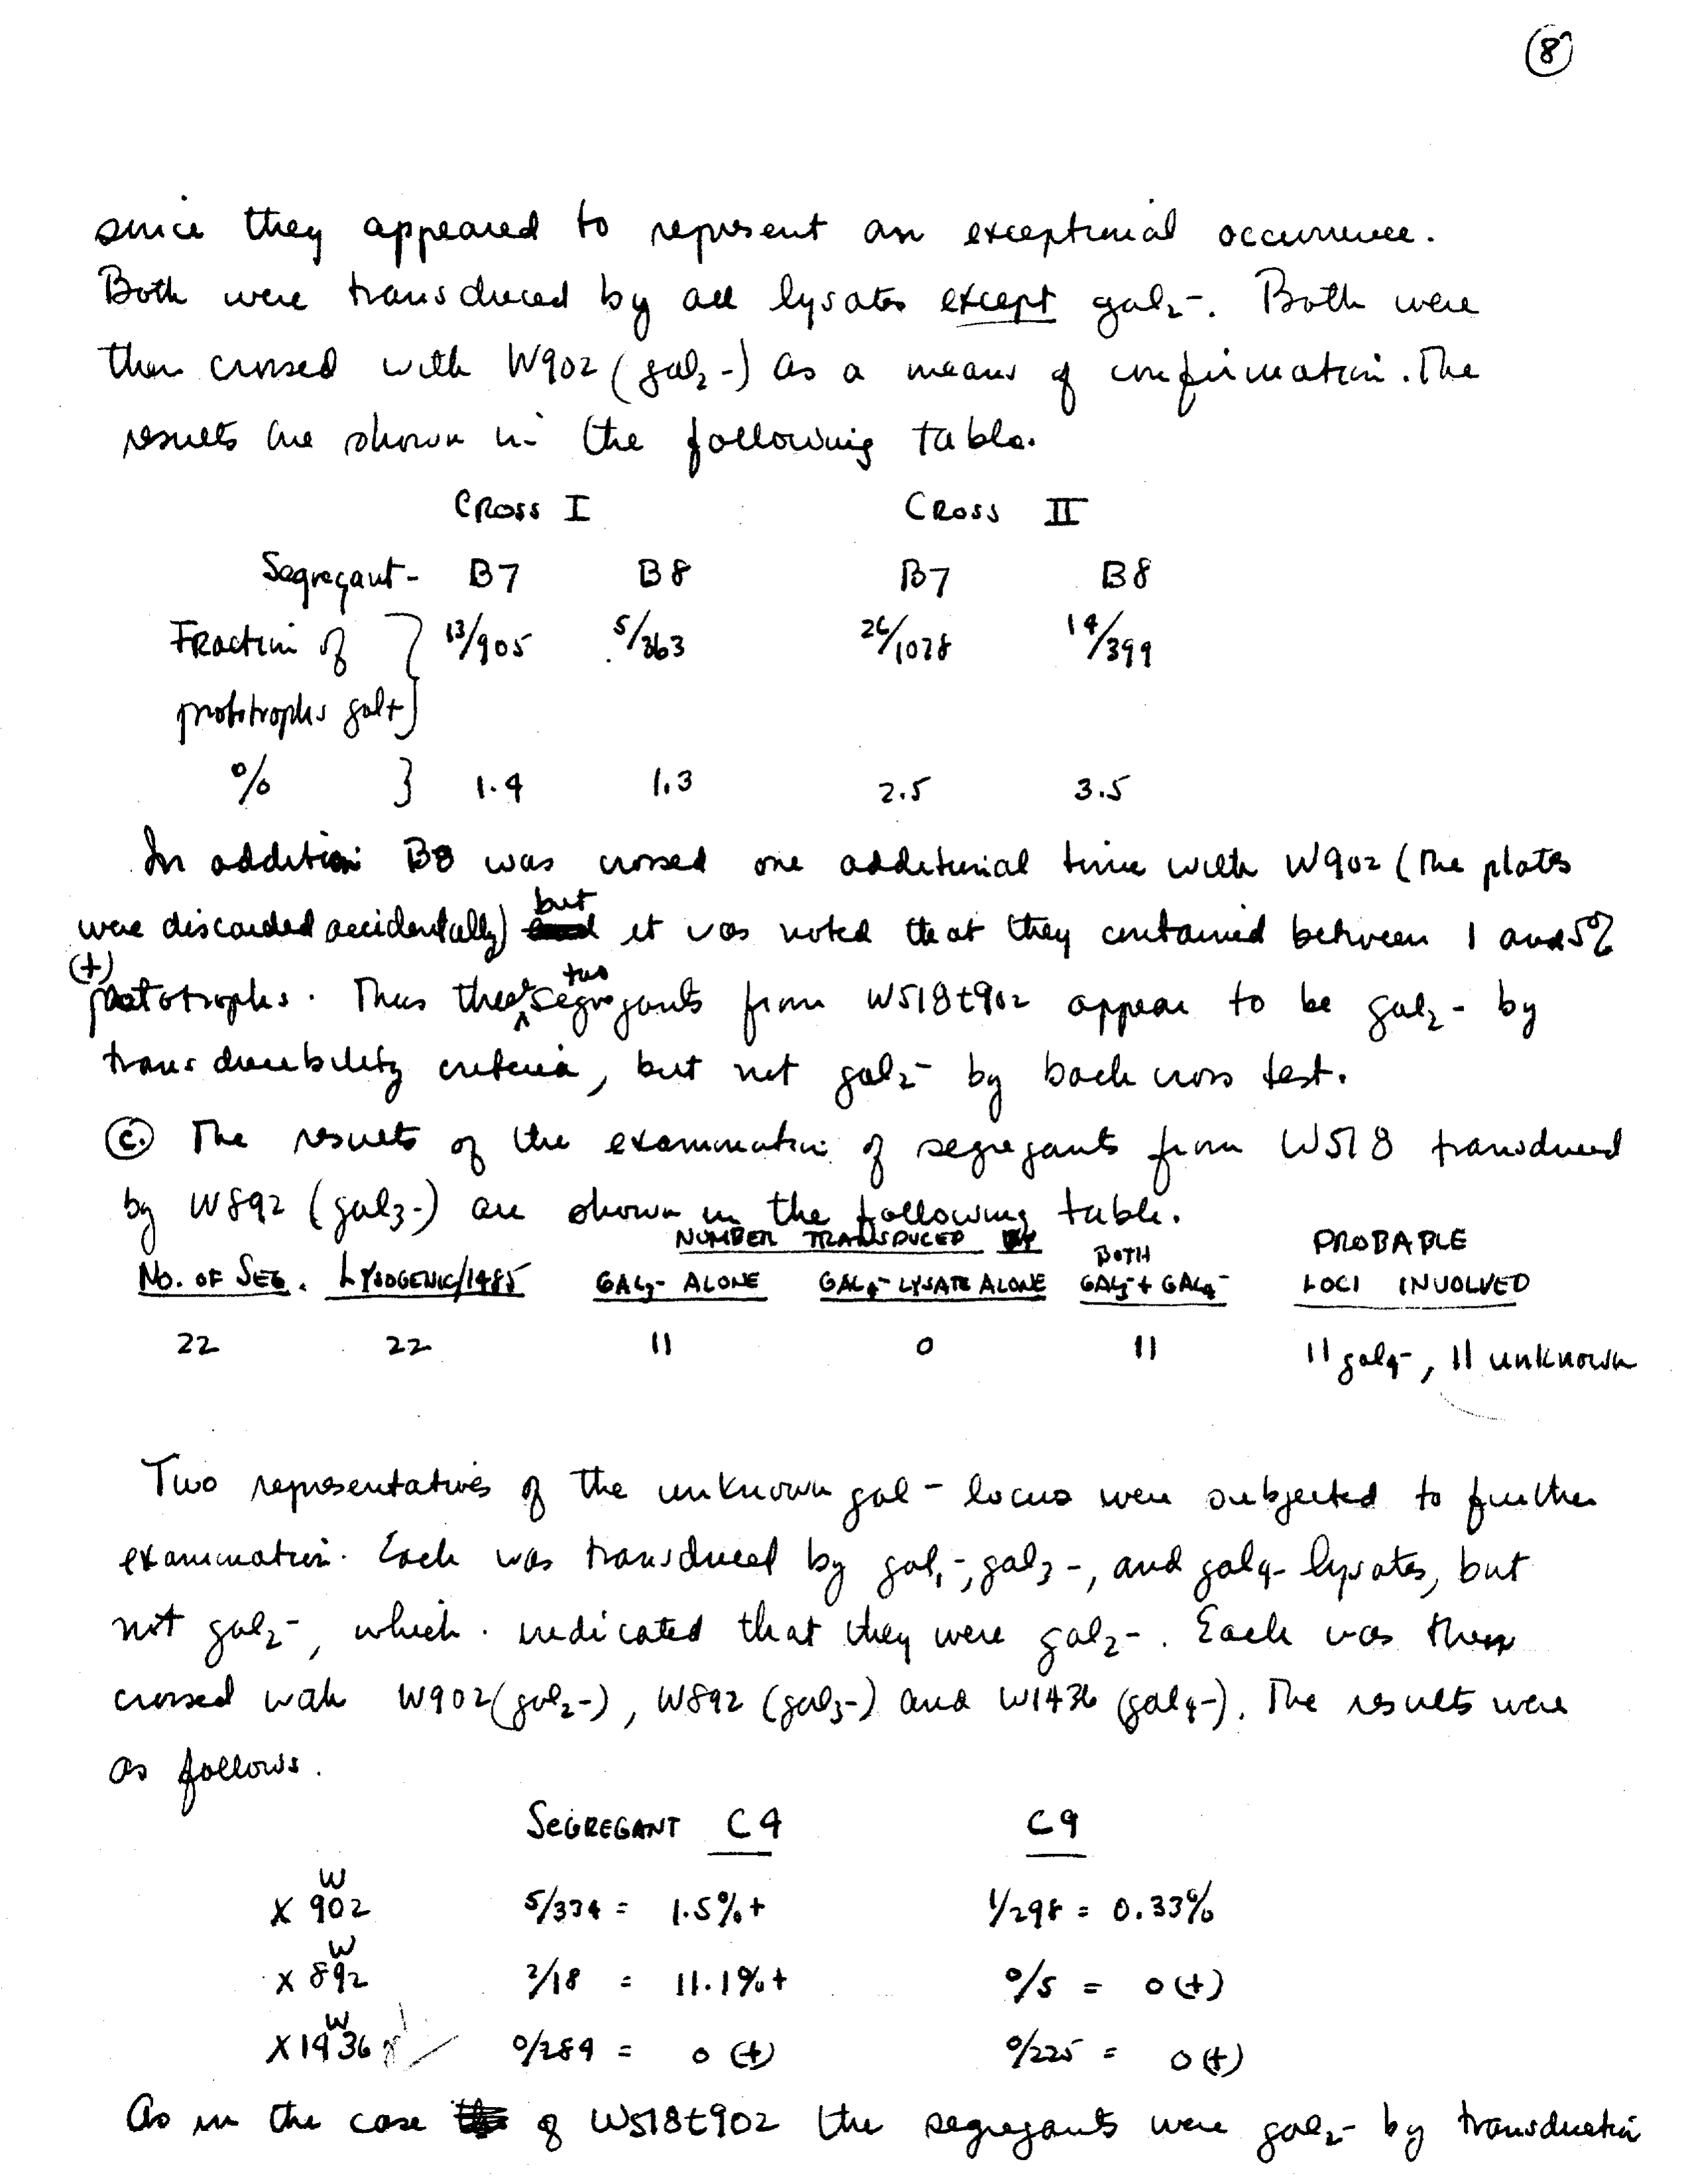 8
since they appeared to represent an exceptional occurrence.
Both were transduced by all lysates except gal2-. Both were
then crossed with W902 (gal2-) as a means of confirmation. The
results are shown in the following table.
CROSS I CROSS II
Segregant- B7 B8 B7 B8
Fraction of } 13/905 5/363 26/1028 14/399
prototrophs gal+
% } 1.4 1.3 2.5 3.5
In addition B8 was crossed one additional time with W902 (the plates
were discarded accidentally) but it was noted that they contained between 1 and 5%
(+)
prototrophs. Thus these two segregants from W518t902 appear to be gal2- by
transducibility criteria, but not gal2- by backcross test.
C. The results of the examination of segregants from W518 transduced
by W892 (gal3-) are shown in the following table.
NUMBER TRANSDUCED BY PROBABLE
NO. OF SEG. LYSOGENIC/1485 GAL3- ALONE GAL4- LYSATE ALONE BOTH GAL3- + GAL4- LOCI INVOLVED
22 22 11 0 11 11 gal4-, 11 unknown
Two representatives of the unknown gal- locus were subjected to further
examination. Each was transduced by gal1-, gal3-, and gal4- lysates, but
not gal2-, which indicated that they were gal2-. Each was then
crossed with W902 (gal2-), W892 (gal3-) and W1436 (gal4-). The results were
as follows.
SEGREGANT C4 C9
X W902 5/334 = 1.5%+ 1/298 = 0.33%
X W892 2/18 = 11.1%+ 0/5 = 0(+)
X W1436 0/289 = 0 (+) 0/225 = 0(+)
As in the case of W518t902 the segregants were gal2- by transduction